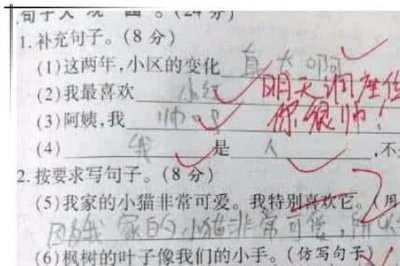 句子大观园。(24分)
1.补充句子。(8分)
(1)这两年,小区的变化真大啊
(2)我最喜欢小红 明天调座位
(3)阿姨,我帅 你很帅!
(4)我是人,不
2.按要求写句子。(8分)
(5)我家的小猫非常可爱。我特别喜欢它。(用
因为我家的小猫非常可爱,所以
(6)枫树的叶子像我们的小手。(仿写句子)